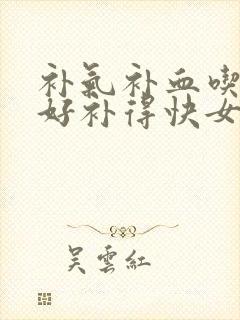 补氣补血喫
好补得快女
吴雲紅